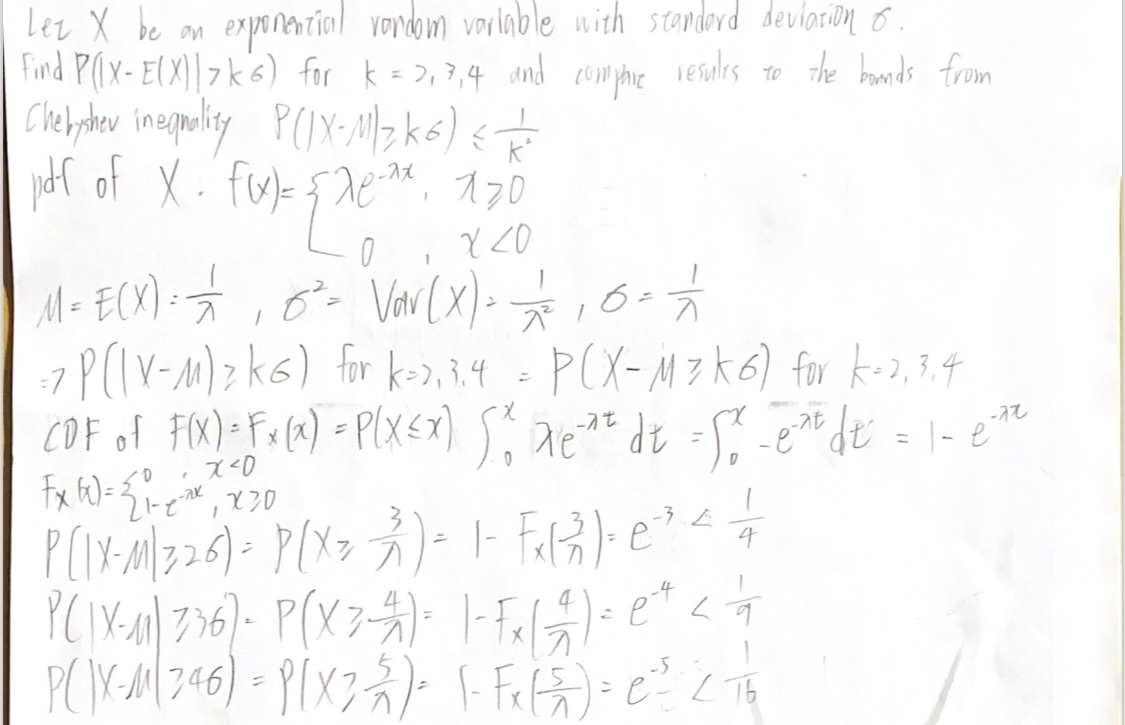 Let X be an exponential random variable with standard deviation σ.
Find P(|X-E(X)|>kσ) for k = 2,3,4 and compare results to the bounds from
Chebyshev inequality P(|X-M|≥kσ) ≤ 1/k²
pdf of X : f(x)= { λe^{-λx}, x≥0
0 , x<0
M = E(X) = 1/λ , σ² = Var(X) = 1/λ² , σ = 1/λ
=> P(|X-M|≥kσ) for k=2,3,4 = P(X-M≥kσ) for k=2,3,4
CDF of F(X) = F_X(x) = P(X≤x) ∫_0^x λe^{-λt} dt = ∫_0^x -e^{-λt} dt = 1-e^{-λx}
F_X(x) = { 0 , x<0
1-e^{-λx}, x≥0
P(|X-M|≥2σ) = P(X≥ 3/λ) = 1- F_X(3/λ) = e^{-3} < 1/4
P(|X-M|≥3σ) = P(X≥ 4/λ) = 1-F_X(4/λ) = e^{-4} < 1/9
P(|X-M|≥4σ) = P(X≥ 5/λ) = 1-F_X(5/λ) = e^{-5} < 1/16